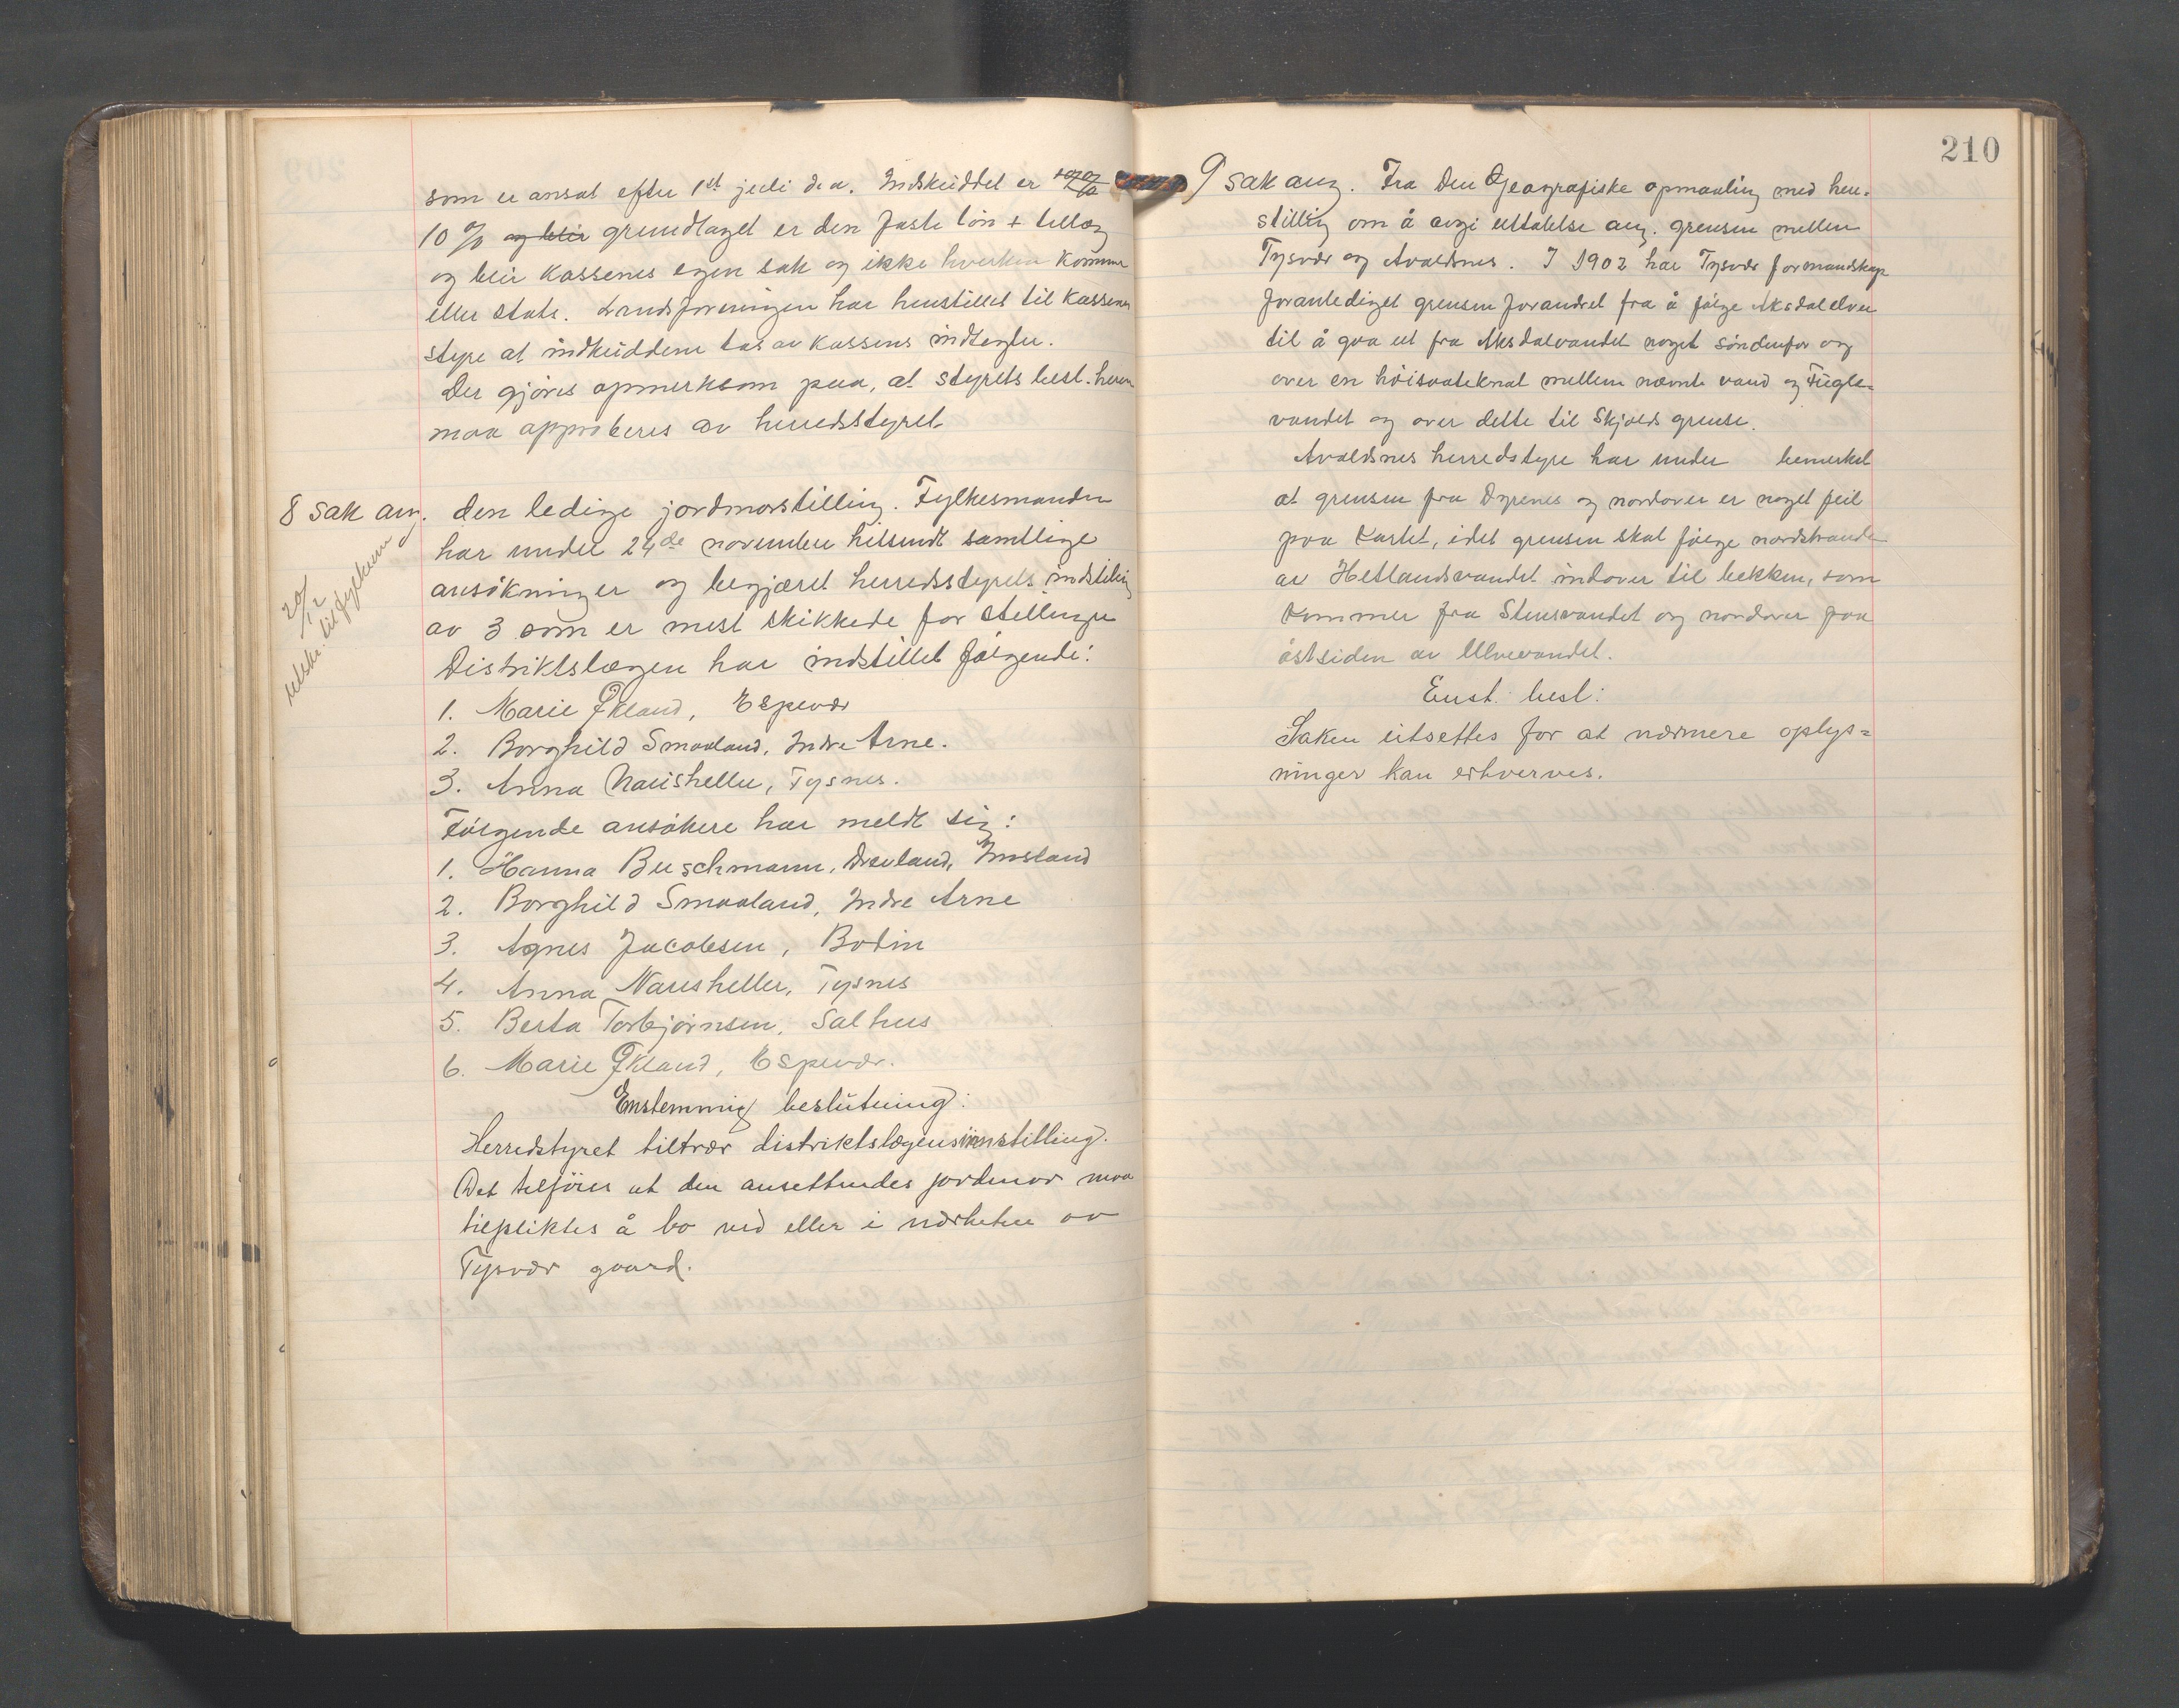 som er ansat efter 1st juli d. a. Indskuddet er
10 % og blir grundlaget er den faste løn + tillæg
og blir kassenes egen sak og ikke hverken kommune
eller stats. Landsforeningen har henstillet til kassenes
styre at indkuddene tas av kassens indtegter.
Der gjøres opmerksom paa, at styrets best. herom
maa approberes av herredsstyret
8 sak ang. den ledige jordmorstilling. Fylkesmanden
har under 24de november tilsendt samtlige
ansökninger og begjæret herredsstyrets indstilling
av 3 som er mest skikkede for stillingen
Distriktslægen har indstillet følgende:
20/12
utskr. til fylkesm
1. Marie Økland, Espevær
2. Borghild Smaaland, Indre Arne.
3. Anna Naustheller, Tysnes.
Følgende ansökere har meldt sig:
1. Hanna Buschmann, Imsland
2. Borghild Smaaland, Indre Arne
3. Agnes Jacobsen, Bodin
4. Anna Naustheller, Tysnes
5. Berta Torbjørnsen, Salhus
6. Marie Økland, Espevær.
Enstemmig beslutning:
Herredstyret tiltrær distriktslægens innstilling.
Det tilføies at den ansettendes jordmor maa
tilpliktes å bo ved eller i nærheten av
Tysvær gaard.
210
9 sak ang. Fra Den Geografiske opmaaling med hen-
stillig om å avgi uttalelse ang. grensen mellem
Tysvær og Avaldsnes. I 1902 har Tysvær formandskap
foranlediget grensen forandret fra å følge Aksdalelven
til å gaa ut fra Aksdalvandet noget söndenfor og
over en höisvateknat mellem nævnte vand og Fugle=
vandet og over dette til Skjolds grense.
Avaldsnes herredstyre har under bemerket
at grensen fra Dyrenes og nordover er noget feil
paa Kartet, idet grensen skal følge nordstranden
av Hetlandsvandet indover til bekken, som
kommer fra Stensvandet og nordover paa
östsiden av Ulvevandet.
Enst. besl:
Saken utsettes for at nærmere oplys=
ninger kan erhverves.